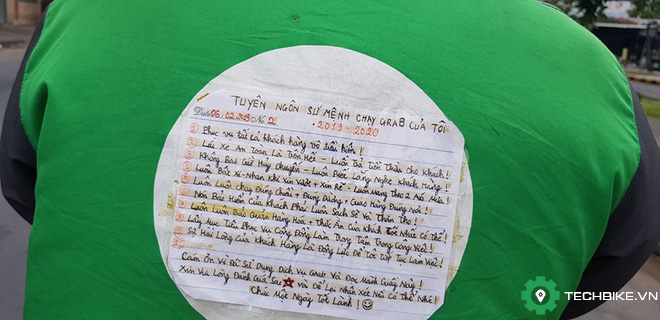 TUYÊN NGÔN SỨ MỆNH CHẠY GRAB CỦA TÔI
Date 06.02.2019 No. 02
• 2019 - 2020
① Phục vụ tất cả khách hàng vô điều kiện!
② Lái Xe An Toàn Là Trên Hết - Luôn Trả Tiền Thừa Cho Khách!
③ Không Bao Giờ Hủy Chuyến - Luôn Biết Lắng Nghe Khách Hàng!
④ Luôn Bật Xi-Nhan Khi xin vượt + Xin Rẽ - Luôn mang theo 2 Áo Mưa!
⑤ Luôn Luôn Chạy Đúng Chuẩn + Đúng Đường + Giao Hàng Đúng nơi!
⑥ Nón Bảo Hiểm Của Khách Phải Luôn Sạch Sẽ Và Thơm Tho!
⑦ Luôn Luôn Bảo Quản Hàng Hóa + Thức Ăn Của Khách Tốt Nhất Có Thể!
Lấy Mục Tiêu Phục Vụ Cộng Đồng Làm Trọng Tâm Trong Công Việc!
Sự Hài Lòng Của Khách Hàng Là Động Lực Để Tôi Tiếp Tục Làm Việc!
Cảm Ơn Vì Đã Sử Dụng Dịch Vụ Grab Và Đọc Mảnh Giấy Này!
Xin Vui Lòng Đánh Giá Sao Và Để Lại Nhận Xét Nếu Có Thể Nhé!
Chúc Một Ngày Tốt Lành!
TECHBIKE.VN